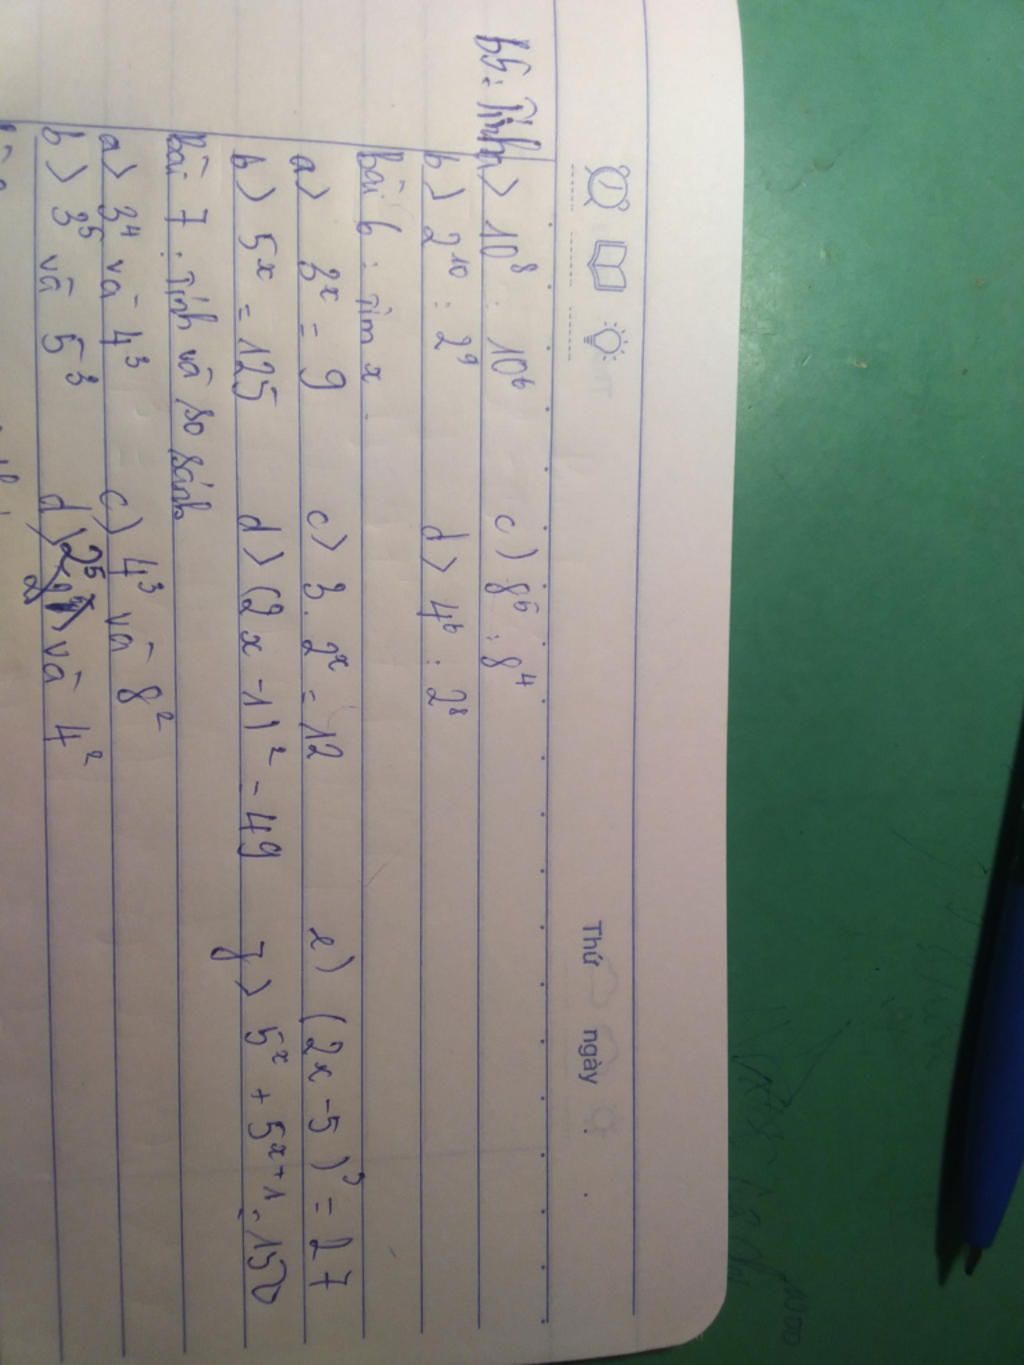 Thứ ngày
b5: Tính a> 10⁸ : 10⁶ c) 8⁶ : 8⁴
b> 2¹⁰ : 2⁹ d> 4⁶ : 2⁸
Bài 6 : Tìm x.
a> 3ˣ = 9 c> 3 . 2ˣ = 12 e) (2x - 5)³ = 27
b> 5ˣ = 125 d> (2x - 1)² = 49 g> 5ˣ + 5ˣ⁺¹ = 150
Bài 7 : Tính và so sánh
a> 3⁴ và 4³ c) 4³ và 8²
b> 3⁵ và 5³ d) 2⁵ và 4²